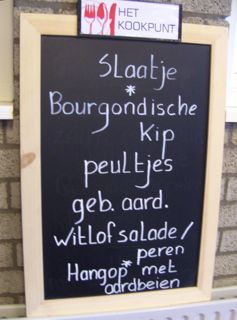 HET
KOOKPUNT
Slaatje
*
Bourgondische
Kip
peultjes
geb. aard.
witlofsalade/
peren
*
Hangop met
aardbeien